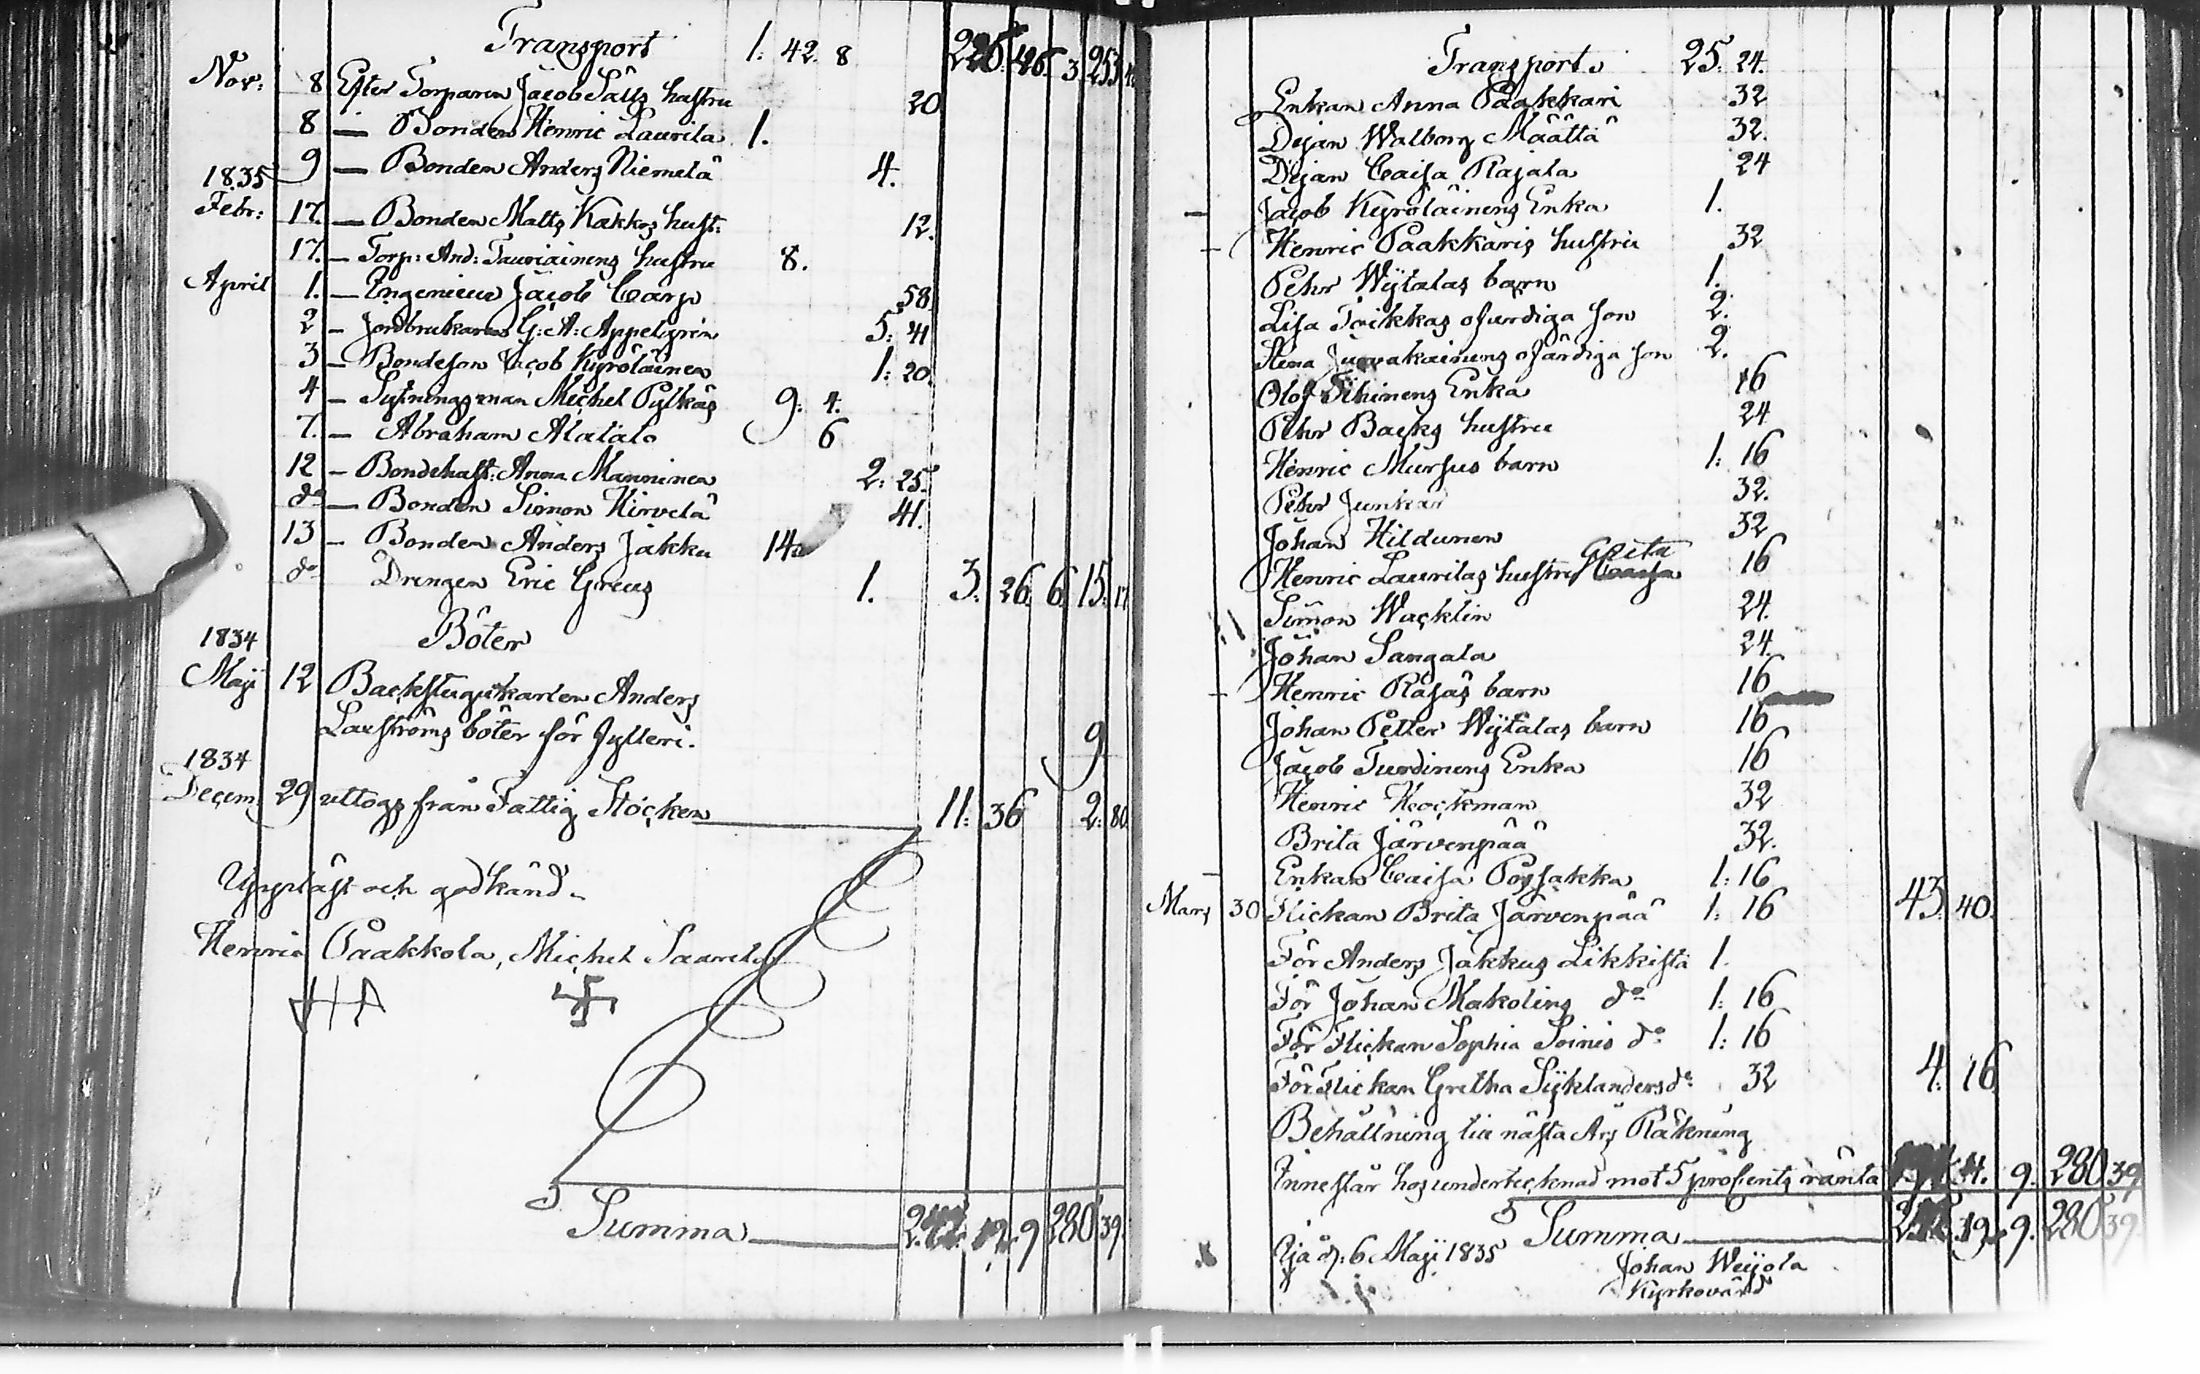 Transport 1: 42. 8 3. 253
Nov: 8 Efter Torparen Jacob Sälls hustru 20
8 — Bonden Henric Laurila 1.
1835 9 — Bonden Anders Niemelä 4.
Febr: 17. — Bonden Matts Kakkos hust: 12.
17. — Torp: And: Tauriainens hustru 8.
April 1. — Engenieur Jacob Carp 58
2 — Jordbrukaren G: A: Appelgrin 5: 41
3 — Bondeson Jacob Kyröläinen 1: 20.
4 — Sytningsman Michel Pylkäs 9: 4.
7. — Abraham Alatalo 6
12 — Bondehust: Anna Manninen 2: 25.
do — Bonden Simon Hirvelä 41.
13 — Bonden Anders Jakku 14
do Drengen Eric Greus 1. 3: 26. 6. 15: 17
Böter
1834
Maji 12 Backstugukarlen Anders
Laxströms böter för fylleri. 9
1834
Decem 29 uttogs från Fattig Stocken 11: 36 2: 80.
Uppläst och godkänd.
Henric Paakkola, Michel Saarela
Summa 9 280 39.
Transport. 25: 24.
Enkan Anna Paakkari 32
Dejan Walborg Määttä 32.
Dejan Caisa Rajala 24
Jacob Kyröläinens Enka 1.
Henric Paakkaris hustru 32
Pehr Wÿtalas barn 1.
Lisa Toikkas ofärdiga son 2.
ofärdiga son 2.
Olof Enka 16
Pehr Backs hustru 24
Henric Mursus barn 1: 16
Pehr Junkar 32.
Johan Hildunen 32
Greta
Henric Laurilas hustru Caisa 16
Simon Wacklin 24.
Johan Sangala 24.
Henric Rasas barn 16
Johan Petter Wÿtalas barn 16
Jacob Turdinens Enka 16
Henric Hockman 32
Brita Järvenpää 32.
Enkan Caisa Possakka 1: 16
Mars 30 Flickan Brita Järvenpää 1: 16 43. 40.
För Anders Jakkus Likkista 1.
För Johan Makolins do 1: 16
För Flickan Sophia Soinis do 1: 16
För Flickan Gretha Sÿklanders do 32 4: 16.
Behållning till nästa Års Räkning
Innestår hos undertecknad mot 5 procents ränta 9. 280 39
Summa 19. 9. 280 39.
Ijå d. 6 Maji 1835
Johan Weijola
Kyrkovärd